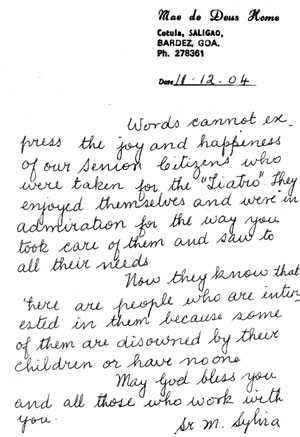 Mae de Deus Home
Cotula, SALIGAO,
BARDEZ, GOA.
Ph. 278361
Date 11-12.04
Words cannot ex-
press the joy and happiness
of our Senior Citizens who
were taken for the "Tiatro". They
enjoyed themselves and were in
admiration for the way you
took care of them and saw to
all their needs.
Now they know that
here are people who are inter-
ested in them because some
of them are disowned by their
children or have no one
May God bless you
and all those who work with
you.
Sr. M. Sylvia